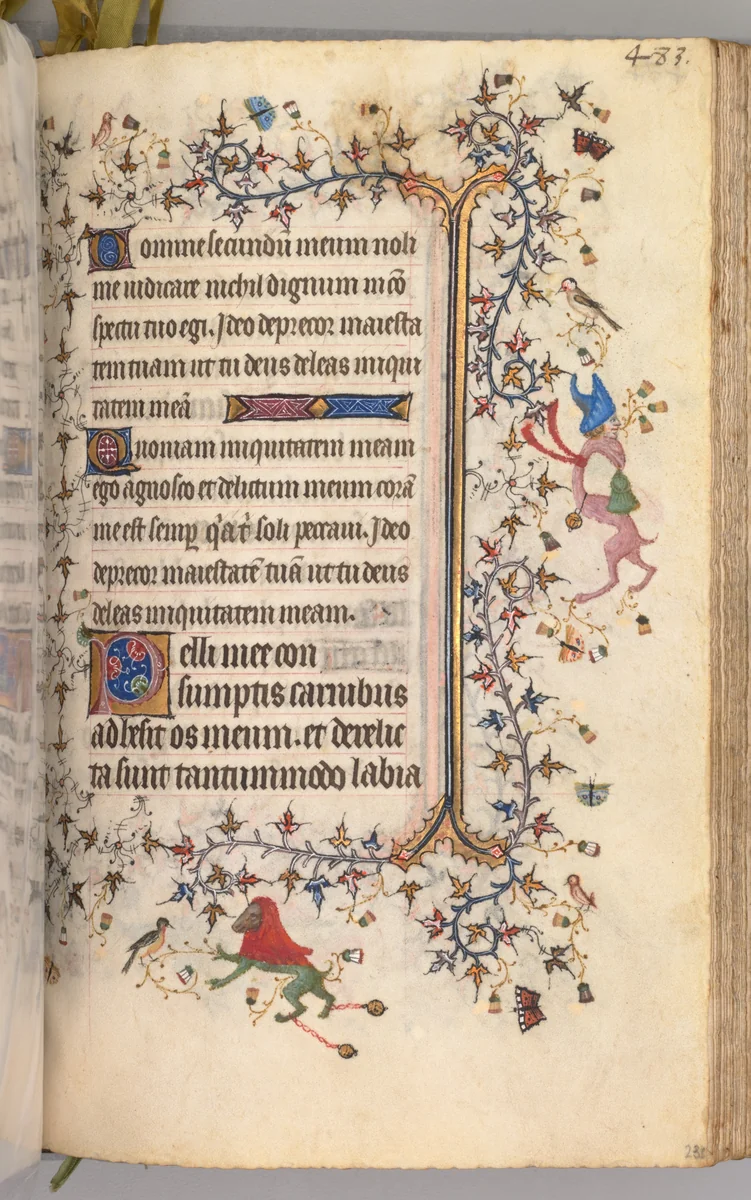 483.
Domine secundū meum noli
me iudicare nichil dignum in cō
spectu tuo egi. Ideo deprecor maiesta
tem tuam ut tu deus deleas iniqui
tatem meā
Quoniam iniquitatem meam
ego agnosco et delictum meum corā
me est semp
soli peccaui. Ideo
deprecor maiestatē tuā ut tu deus
deleas iniquitatem meam.
Pelli mee con
sumptis carnibus
adhesit os meum. et derelic
ta sunt tantummodo labia